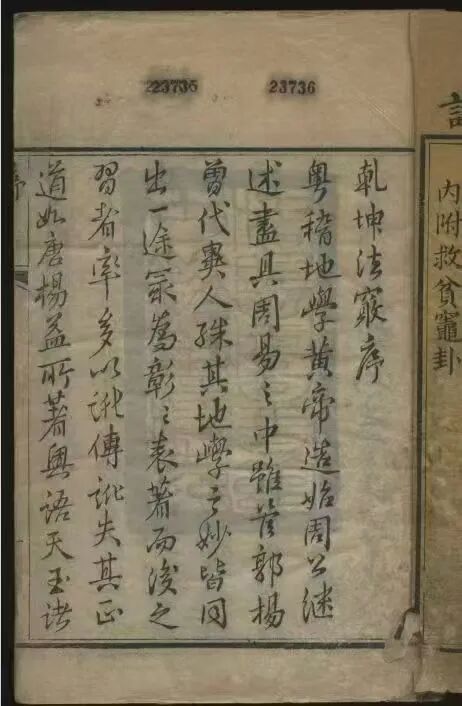 23736
內附救貧竈卦
乾坤法竅序
粵稽地學黃帝造始周公继
述盡具周易之中雖管郭楊
曾代異人殊其地學之妙皆同
出一途最為彰〻表著而後之
習者率多以訛傳訛失其正
道如唐楊益所著奧語天玉诸
序